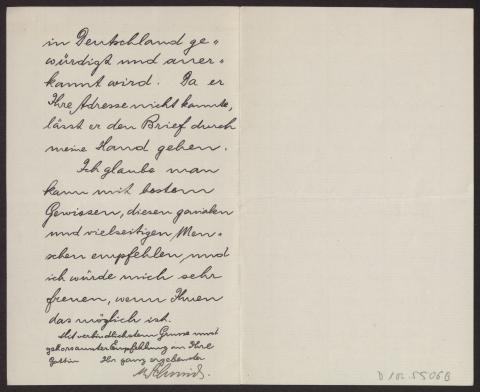 in Deutschland ge„
würdigt und aner„
kannt wird. Da er
Ihre Adresse nicht kannte,
lässt er den Brief durch
meine Hand gehen.
Ich glaube man
kann mit bestem
Gewissen, diesen genialen
und vielseitigen Men„
schen empfehlen und
ich würde mich sehr
freuen, wenn Ihnen
das möglich ist.
Mit verbindlichstem Grusse und
gehorsamster Empfehlung an Ihre
Gattin Ihr ganz ergebenster